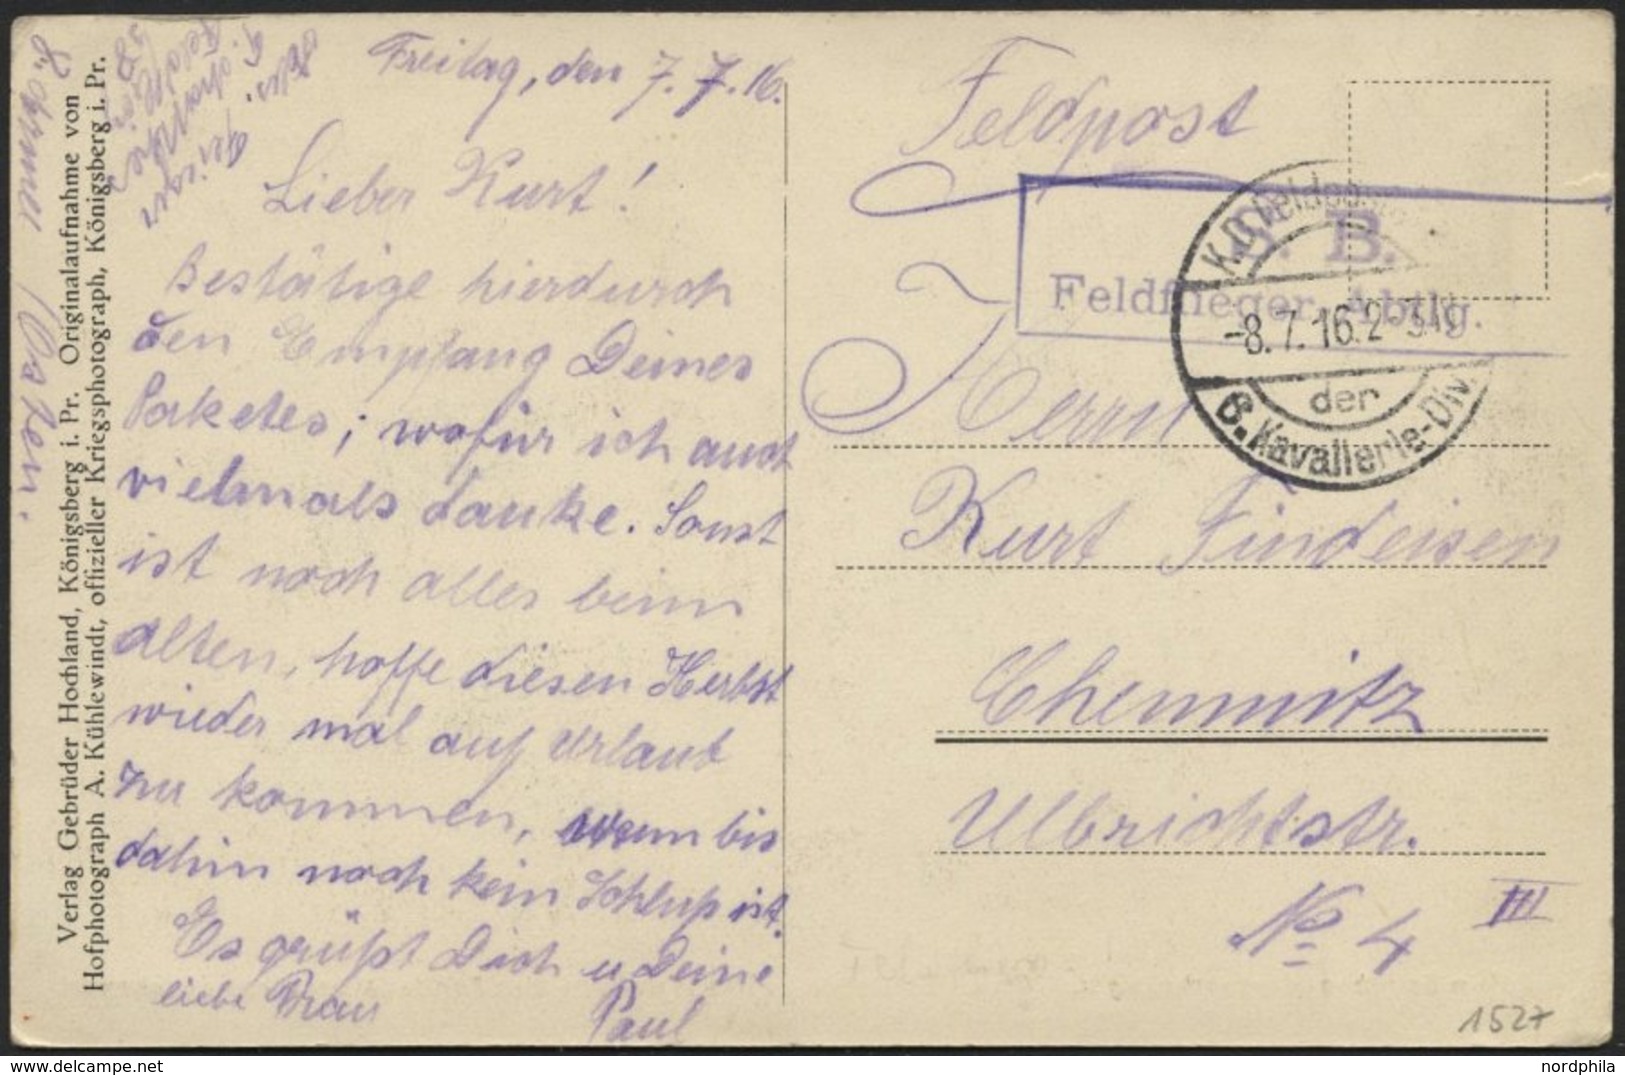 Freitag, den 7.7.16.
Lieber Kurt!
Bestätige hierdurch
den Empfang Deines
Paketes; wofür ich auch
vielmals danke. Sonst
ist noch alles beim
alten, hoffe diesen Herbst
wieder mal auf Urlaub
zu kommen, wenn bis
dahin noch kein Schluß ist.
Es grüßt Dich u Deine
liebe Frau
Paul
8. Armee Osten.
Verlag Gebrüder Hochland, Königsberg i. Pr. Originalaufnahme von
Hofphotograph A. Kühlewindt, offizieller Kriegsphotograph, Königsberg i. Pr.
Feldpost
S. B.
Feldflieger-Abtlg.
K.D. Feldpost
-8.7.16.2-3N
der
8. Kavallerie-Div.
Herrn
Kurt Findeisen
Chemnitz
Ulbrichtstr.
No 4 III
1527
nordphila